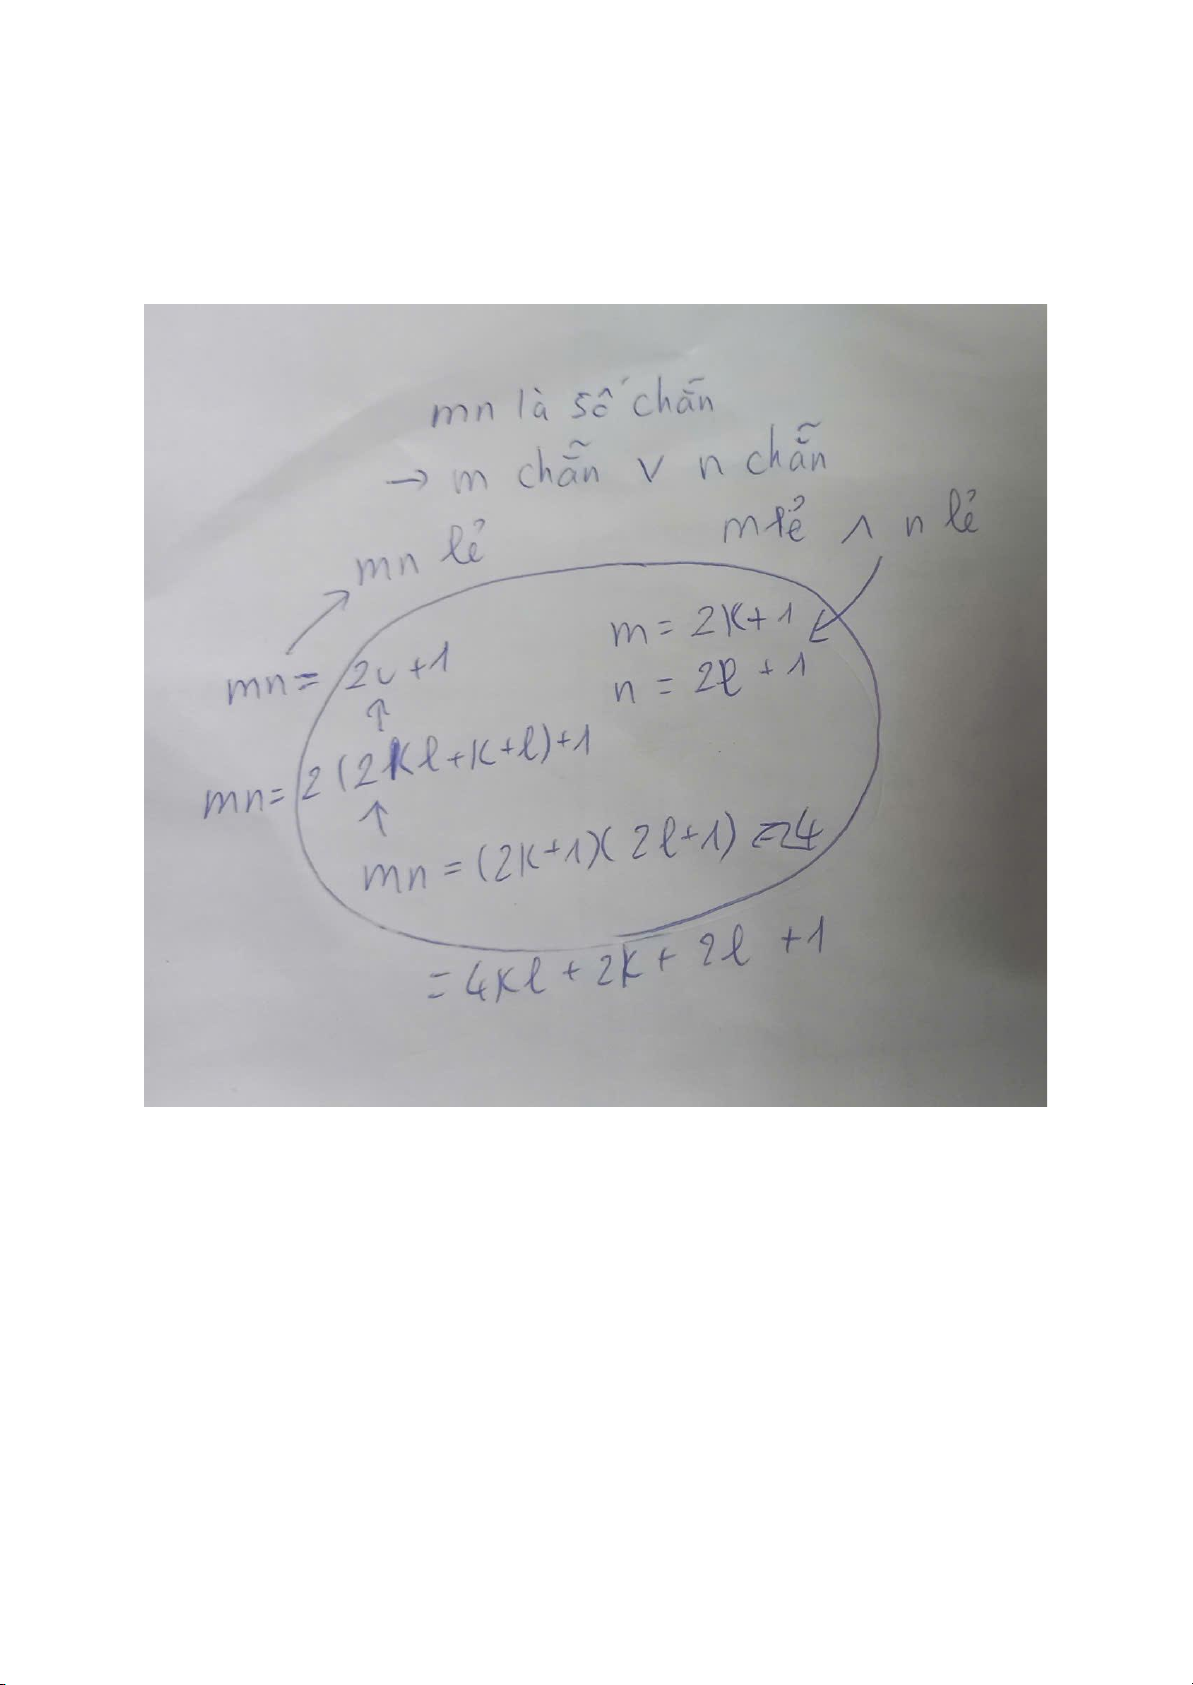 mn là số chẵn
→ m chẵn ∨ n chẵn
m lẻ ∧ n lẻ
mn lẻ
m = 2k+1
n = 2l + 1
mn = 2u +1
mn = 2(2kl+k+l)+1
mn = (2k+1)(2l+1) = 4
= 4kl + 2k + 2l + 1